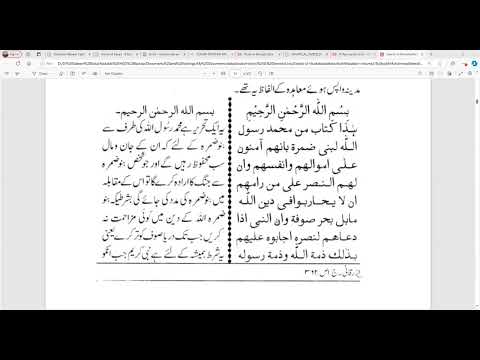 مدینہ واپس ہوئے معاہدہ کے الفاظ یہ تھے۔
بِسْمِ اللّٰهِ الرَّحْمٰنِ الرَّحِيْمِ
هٰذا كتاب من محمد رسول
اللّٰه لبنى ضمرة بانهم آمنون
على اموالهم وانفسهم وان
لهم النصر على من رامهم
ان لا يحاربوا فى دين اللّٰه
مابل بحر صوفة وان النبى اذا
دعاهم لنصره اجابوه عليهم
بذلك ذمة اللّٰه وذمة رسوله
بسم الله الرحمٰن الرحيم۔
یہ ایک تحریر ہے محمد رسول اللہ کی طرف سے
بنو ضمرہ کے لئے کہ ان کے جان و مال
سب محفوظ رہیں گے اور جو شخص بنو ضمرہ
سے جنگ کا ارادہ کرے گا تو اس کے مقابلہ
میں بنو ضمرہ کی مدد کی جائے گی بشرطیکہ بنو
ضمرہ اللہ کے دین میں کوئی مزاحمت نہ
کریں جب تک دریا صوف کو تر کرے یعنی
یہ شرط ہمیشہ کے لئے ہے نبی کریم جب انکو
زرقانی۔ ج ۱ ص ۳۹۲